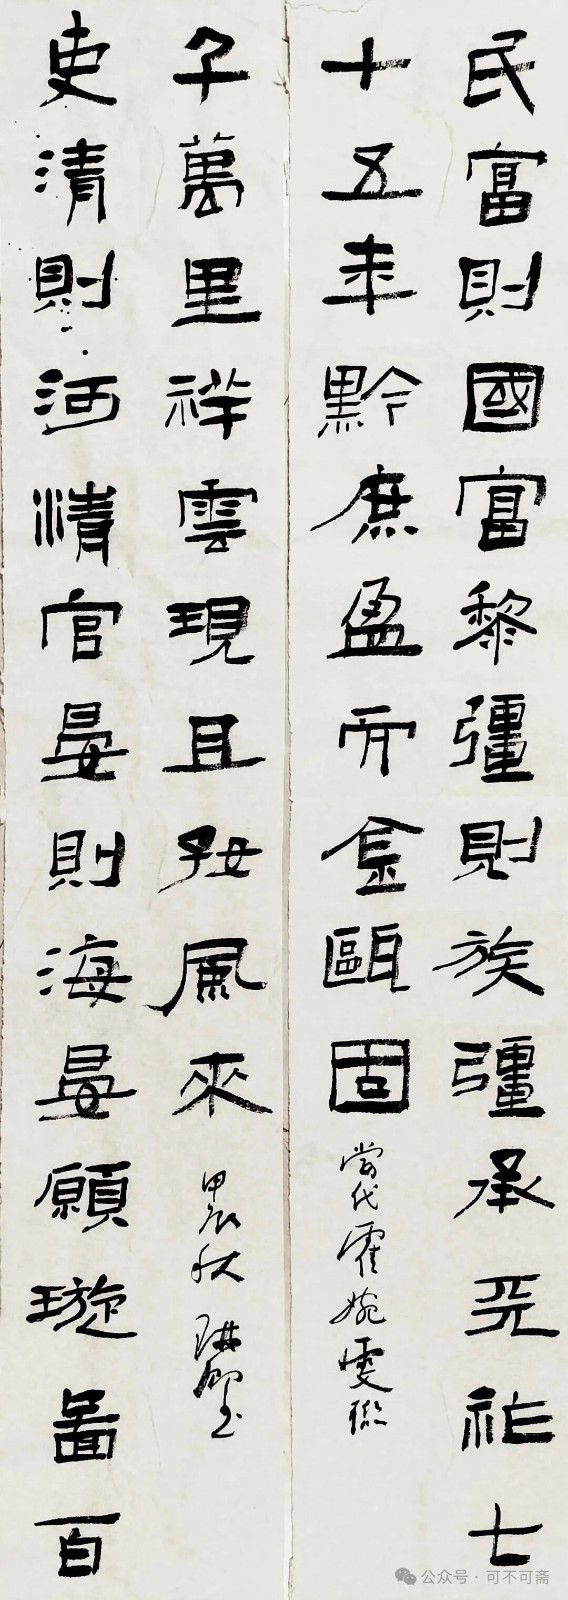 民富則國富黎彊則族彊承祚七
十五年黔庶盈而金甌固
當代霍婉雯聯
吏清則河清官晏則海晏願璇啚百
千萬里祥雲現且好風來
甲辰秋 書
公众号·可不可斋